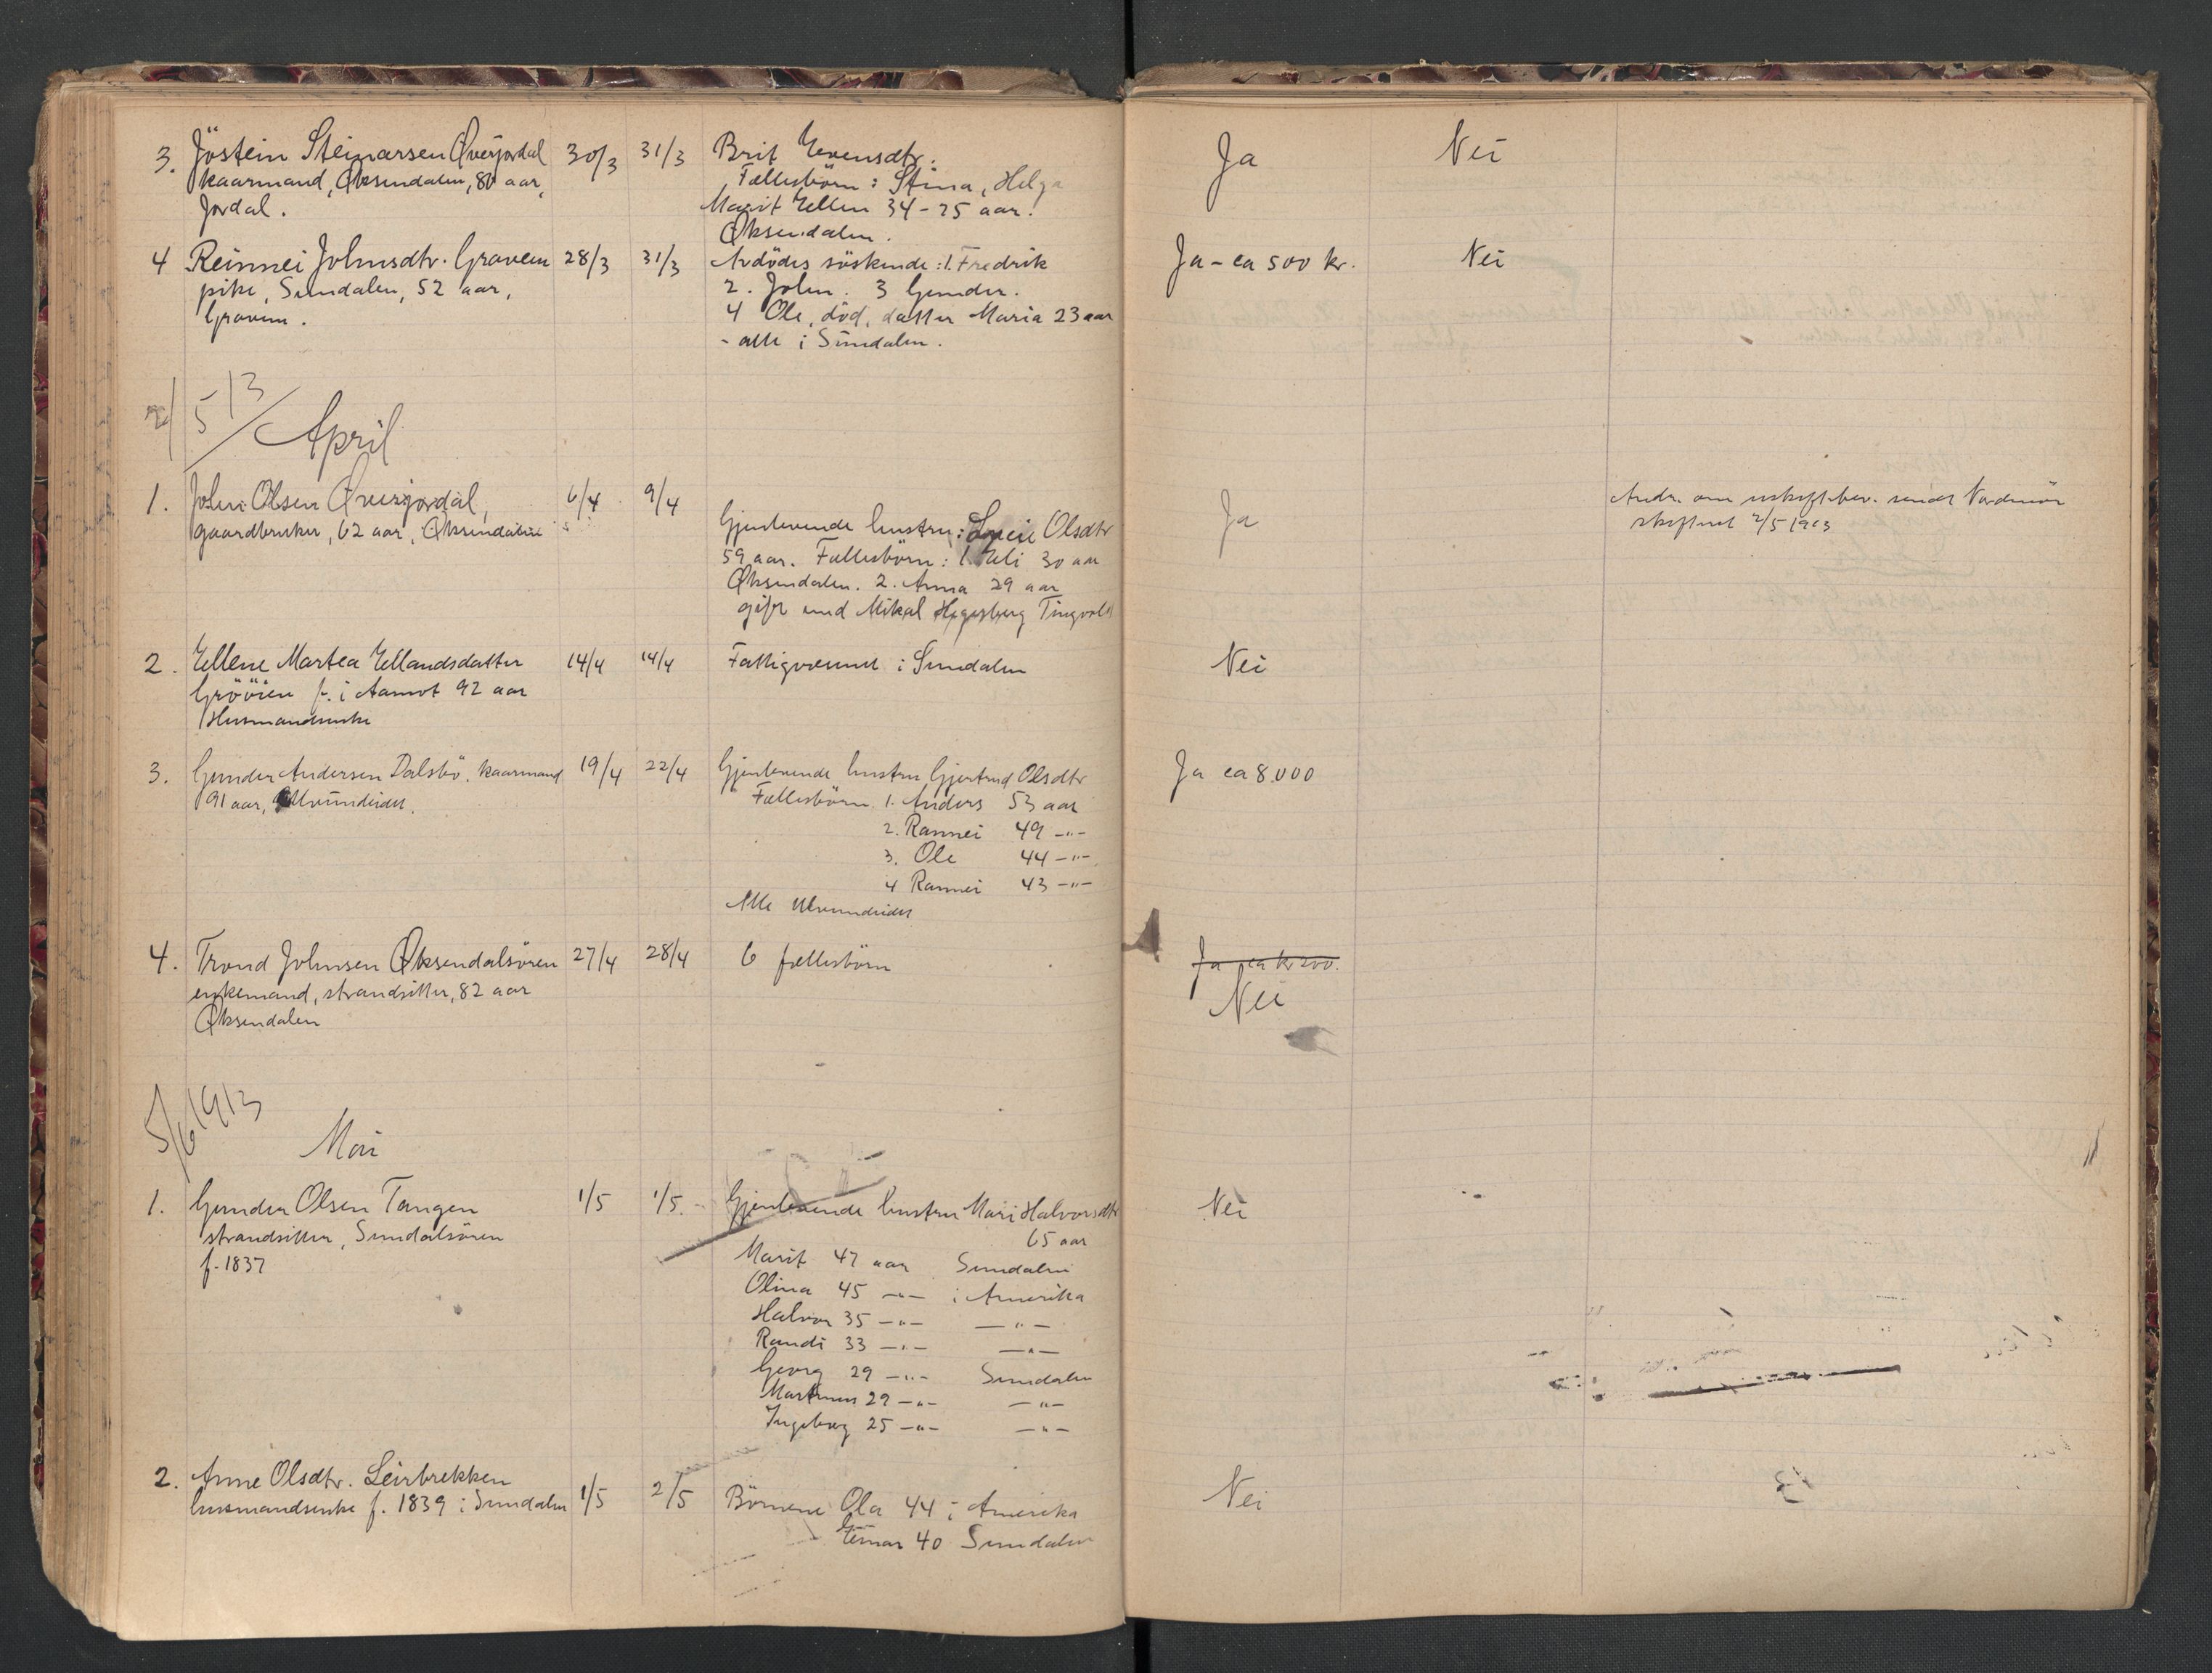 3. Jöstein Steinarsen Øverjordal 30/3 31/3 Brit Evensdtr. Ja Nei
kaarmand, Øksendalen, 80 aar, Fællesbörn: Stina, Helga
Jordal. Marit Ellen 34-25 aar.
Øksendalen.
4 Reinnei Johnsdtr. Gravem 28/3 31/3 Avdödes söskende: 1. Fredrik Ja - ca 500 kr. Nei
pike, Sundalen, 52 aar, 2. John. 3 Gunder.
Gravem. 4 Ole, död, datter Maria 23 aar
- alle i Sundalen.
2/5 13
April
1. John Olsen Øverjordal, 6/4 9/4 Ja Andr. om uskiftebev. sendt Nordmör
gaardbruker, 62 aar, Øksendalen Gjenlevende hustru: Olsdtr skifteret 2/5 1913
59 aar. Fællesbörn: 1. Eli 30 aar
Øksendalen. 2. Anna 29 aar
gift med Mikal Tingvoll
2. Ellene Martea Ellandsdatter 14/4 14/4 Fattigvæsenet i Sundalen Nei
Gröören f. i Aamot 92 aar
Husmandsenke
3. Gunder Andersen Dalsbö. kaarmand 19/4 22/4 Gjenlevende hustru Gjertrud Olsdtr Ja ca 8.000
91 aar, Ulvundeidet. Fællesbörn. 1. Anders 53 aar
2. Rannei 49 -"-
3. Ole 44 -"-
4 Rannei 43 -"-
Alle Ulvundeidet
4. Trond Johnsen Øksendalsören 27/4 28/4 6 fællesbörn Ja ca kr 200.
enkemand, strandsitter, 82 aar Nei
Øksendalen
5/6 1913
Mai
1. Gunder Olsen Tangen 1/5 1/5. Gjenlevende hustru Mari Halvorsdtr Nei
strandsitter, Sundalsören 65 aar
f. 1837 Marit 47 aar Sundalen
Olina 45 -"- i Amerika
Halvor 35 -"- -"-
Randi 33 -"- -"-
Georg 29 -"- Sundalen
Martinus 29 -"- -"-
Ingeborg 25 -"- -"-
2. Anne Olsdtr. Leirbrekken
husmandsenke f. 1839 i Sundalen 1/5 2/5 Börnene Ola 44 i Amerika Nei
Einar 40 Sundalen